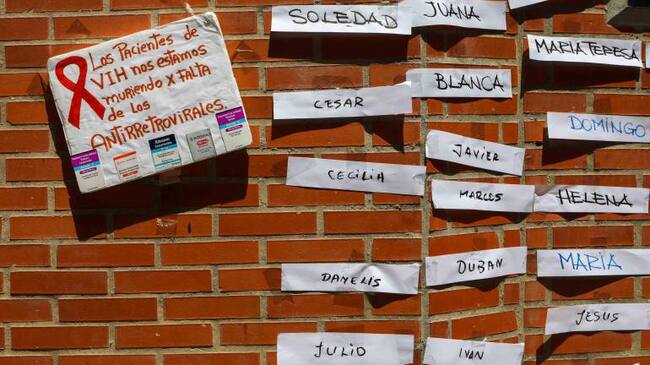 Los Pacientes de
VIH nos estamos
muriendo x FALTA
de los
ANTIRRETROVIRALES.
SOLEDAD
JUANA
MARIA TERESA
BLANCA
CESAR
DOMINGO
JAVIER
CECILIA
MARCOS
HELENA
DUBAN
MARIA
DANELIS
JESUS
JULIO
IVAN